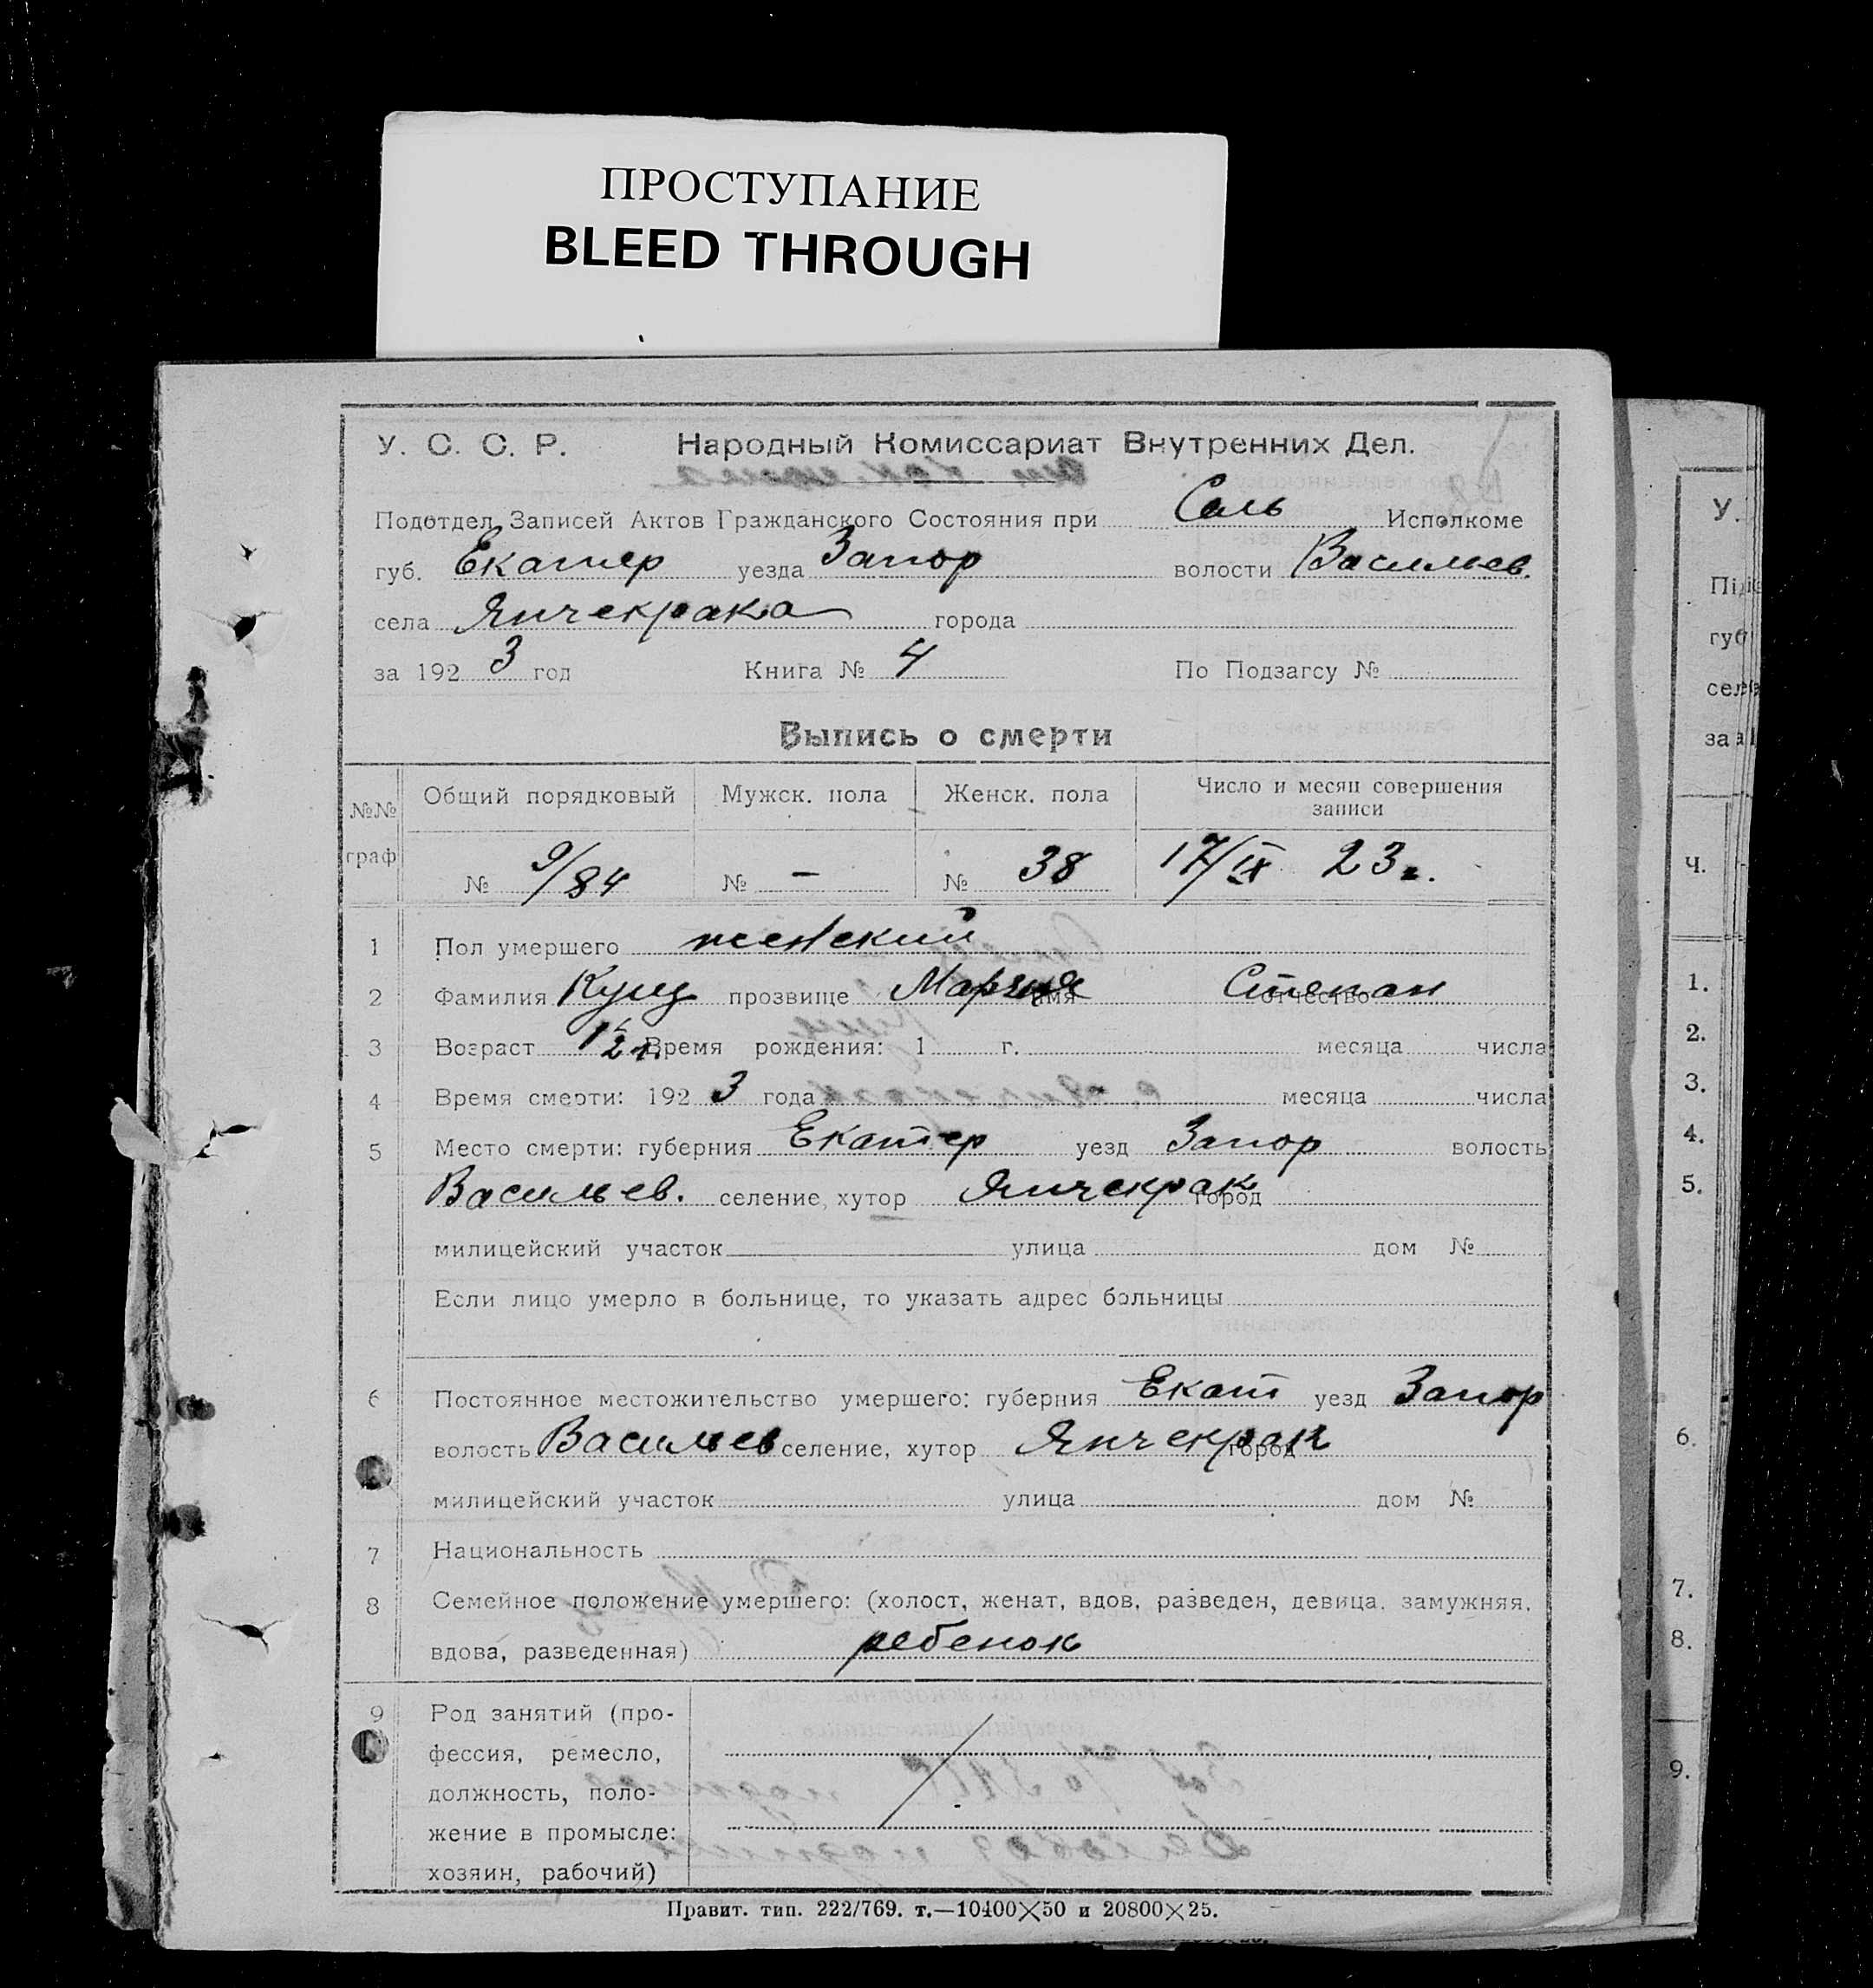 ПРОСТУПАНИЕ
BLEED THROUGH
У. С. С. Р. Народный Комиссариат Внутренних Дел.
Подотдел Записей Актов Гражданского Состояния при Сель Исполкоме
губ. Екатер уезда Запор волости Васильев.
села Янчекрака города
за 1923 год Книга № 4 По Подзагсу №
Выпись о смерти
№№ граф Общий порядковый Мужск. пола Женск. пола Число и месяц совершения записи
№ 9/84 № — № 38 17/IX 23 г.
1 Пол умершего женский
2 Фамилия Кущ прозвище Мария имя Степан отчество
3 Возраст 1/2 г. Время рождения: 1 г. месяца числа
4 Время смерти: 1923 года месяца числа
5 Место смерти: губерния Екатер уезд Запор волость
Васильев. селение, хутор Янчекрак город
милицейский участок улица дом №
Если лицо умерло в больнице, то указать адрес больницы
6 Постоянное местожительство умершего: губерния Екат уезд Запор
волость Васильев селение, хутор Янчекрак город
милицейский участок улица дом №
7 Национальность
8 Семейное положение умершего: (холост, женат, вдов, разведен, девица, замужняя,
вдова, разведенная) ребенок
9 Род занятий (про-
фессия, ремесло,
должность, поло-
жение в промысле:
хозяин, рабочий)
Правит. тип. 222/769. т.—10400×50 и 20800×25.
У.
губ
за
Ч.
1.
2.
3.
4.
5.
6.
7.
8.
9.